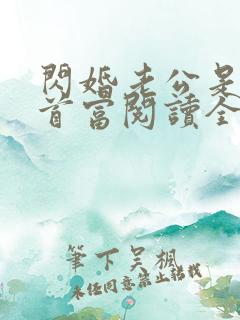 閃婚老公是
首富閱讀全
筆下吳楓
未經同意禁止轉載